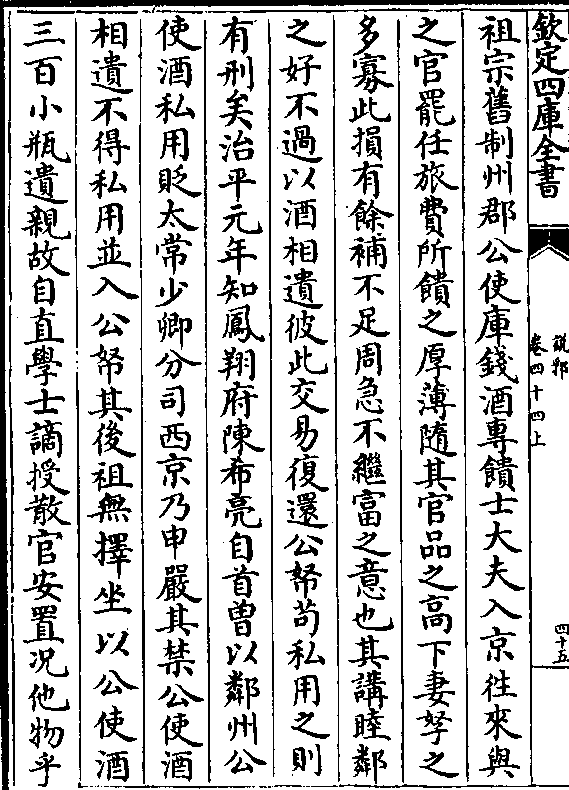 欽定四庫全書
說郛
卷四十四上
四十五
祖宗舊制州郡公使庫錢酒專饋士大夫入京往來與
之官罷任旅費所饋之厚薄隨其官品之高下妻孥之
多寡此損有餘補不足周急不繼富之意也其講睦鄰
之好不過以酒相遺彼此交易復還公帑苟私用之則
有刑矣治平元年知鳳翔府陳希亮自首曽以鄰州公
使酒私用貶太常少卿分司西京乃申嚴其禁公使酒
相遺不得私用並入公帑其後祖無擇坐以公使酒
三百小瓶遺親故自直學士謫授散官安置况他物乎